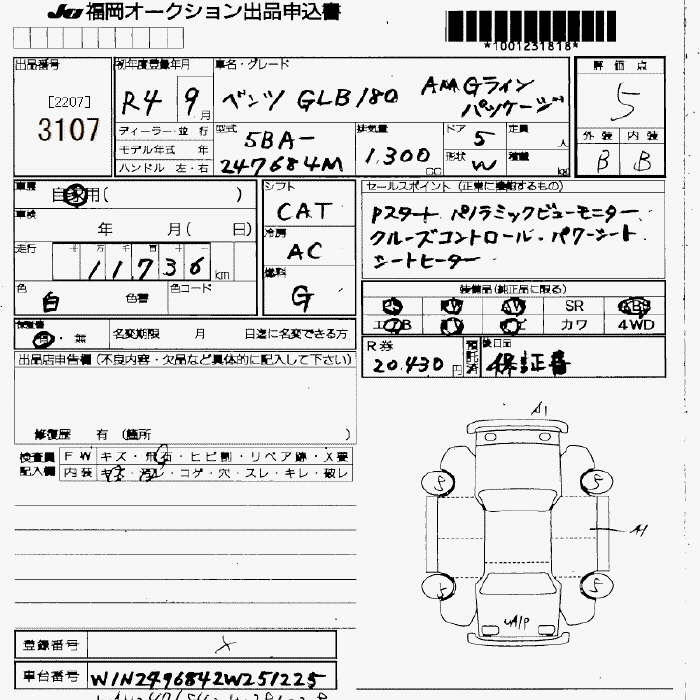 JU 福岡オークション出品申込書
*1001231818*
出品番号
[2207]
3107
初年度登録年月
R4 9月
ディーラー・並行
モデル年式 年
ハンドル 左・右
車名・グレード
ベンツ GLB180 AMGライン
パッケージ
型式
5BA-
247684M
排気量
1.300 cc
ドア 5
形状 W
定員 人
積載 kg
評価点
5
外装 内装
B B
車歴
自家用( )
車検
年 月( 日)
走行
十 万 千 百 十
11736 km
色
白 色替
色コード
シフト
CAT
冷房
AC
燃料
G
セールスポイント (正常に機能するもの)
Pスタート パノラミックビューモニター
クルーズコントロール・パワーシート
シートヒーター
装備品(純正品に限る)
PS PW AW SR ABS
エアB TV ナビ カワ 4WD
有・無
名変期限 月 日迄に名変できる方
R券
20.430 円
預託済
後日品
保証書
出品店申告欄 (不良内容・欠品など具体的に記入して下さい)
修復歴 有 (箇所 )
検査員
記入欄
FW キズ・飛石・ヒビ割・リペア跡・X要
内装 キズ・汚レ・コゲ・穴・スレ・キレ・破レ
A1
5 5
A1
5 5
UA1P
登録番号
車台番号 W1N2496842W251225